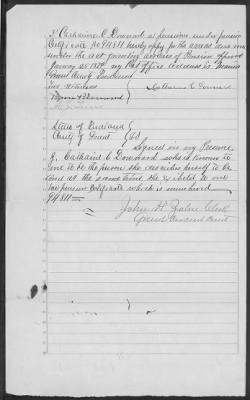 I Catharine C Dowward a pensioner under pension
Certificate No 94811 hereby apply for the arrears due me
under the act granting arrears of Pension Approved
January 25 1879. my Post Office address is Marion
Grant County Indiana
Two witnesses
Catharine C Dowward
State of Indiana
County of Grant } SS
Signed in my Presence
by Catharine C Dowward who is known to
me to be the person she describes herself to be
and at the same time she exhibited to me
her pension Certificate which is numbered
94811
John H Zahn Clerk
Grant Circuit Court